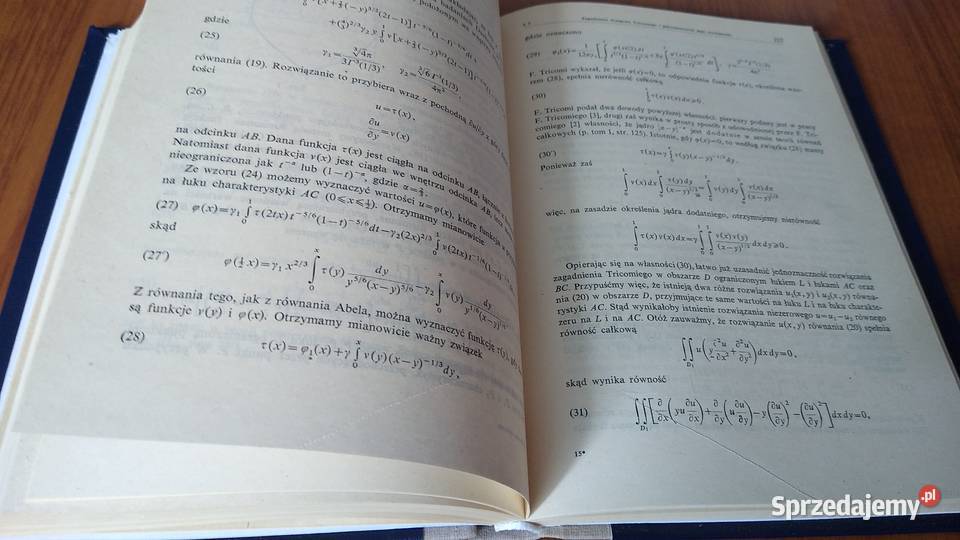 gdzie
(25)
równania (19). Rozwiązanie to przybiera wraz z pochodną
tości
(26) u=τ(x),
∂u/∂y=ν(x)
na odcinku AB. Dana funkcja τ(x) jest ciągła na odcinku AB,
Natomiast dana funkcja ν(x) jest ciągła we wnętrzu odcinka AB,
nieograniczona jak t^-α lub (1-t)^-α, gdzie
Ze wzoru (24) możemy wyznaczyć wartości u=φ(x), które funkcja
na łuku charakterystyki AC (0≤x≤½). Otrzymamy mianowicie
(27) φ(x)=γ₁ ∫₀¹ τ(2tx) t^-5/6 (1-t)^-5/6 dt-γ₂(2x)^2/3 ∫₀¹ ν(2tx) t^-1/6
skąd
(27') φ(½x)=γ₁ x^2/3 ∫₀ˣ τ(y) dy/(y^5/6 (x-y)^5/6) -γ₂ ∫₀ˣ ν(y) dy/
Z równania tego, jak z równania Abela, można wyznaczyć funkcję τ(y),
są funkcje ν(y) i φ(x). Otrzymamy mianowicie ważny związek
(28) τ(x)=φ₁(x)+γ ∫₀ˣ ν(y)(x-y)^-1/3 dy,
gdzie oznaczono
(29)
F. Tricomi wykazał, że jeśli φ(x)=0, to odpowiednia funkcja ν(x), określona wzo-
rem (28), spełnia nierówność całkową
(30) ∫₀¹ τ(x) ν(x) dx≥0.
F. Tricomi podał dwa dowody powyższej własności, pierwszy podany jest w pracy
F. Tricomiego [3], drugi zaś wynika w prosty sposób z udowodnionej przez F. Tri-
comiego [2] własności, że jądro jest dodatnie w sensie teorii równań
całkowych (p. tom I, str. 125). Istotnie, gdy φ(x)=0, to według związku (28) mamy
(30') τ(x)=γ ∫₀ˣ ν(y)(x-y)^-1/3 dy.
Ponieważ zaś
∫₀¹ ν(x) dx ∫₀ˣ ν(y) dy/(x-y)^1/3 = ∫₀¹ ν(y) dy ∫ ν(x) dx/
więc, na zasadzie określenia jądra dodatniego, otrzymujemy nierówność
∫₀¹ τ(x) ν(x) dx=γ ∫₀¹ ∫₀ ν(x) ν(y)/ dx dy≥0.
Opierając się na własności (30), łatwo już uzasadnić jednoznaczność rozwiązania
zagadnienia Tricomiego w obszarze D ograniczonym łukiem L i łukami AC oraz
BC. Przypuśćmy więc, że istnieją dwa różne rozwiązania u₁(x, y) i u₂(x, y) równa-
nia (20) w obszarze D, przyjmujące te same wartości na łuku L i na łuku charakte-
rystyki AC. Stąd wynikałoby istnienie rozwiązania niezerowego u=u₁-u₂ równego
zeru na L i na AC. Otóż zauważmy, że rozwiązanie u(x, y) równania (20) spełnia
równość całkową
∬_D₁ u(y ∂²u/∂x² + ∂²u/∂y²) dx dy=0,
skąd wynika równość
(31) ∬_D₁ [∂/∂x (yu ∂u/∂x) + ∂/∂y (u ∂u/∂y) - y(∂u/∂x)² - (∂u/∂y)²] dx dy=0.
15*
Sprzedajemy.pl